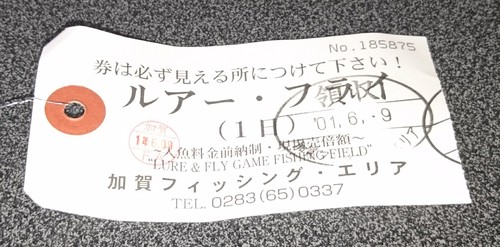 No.185875
券は必ず見える所につけて下さい！
ルアー・フライ
領収
（1日）
'01.6.-9
～入魚料金前納制・現場売倍額～
"LURE & FLY GAME FISHING FIELD"
加賀フィッシング・エリア
TEL. 0283(65)0337